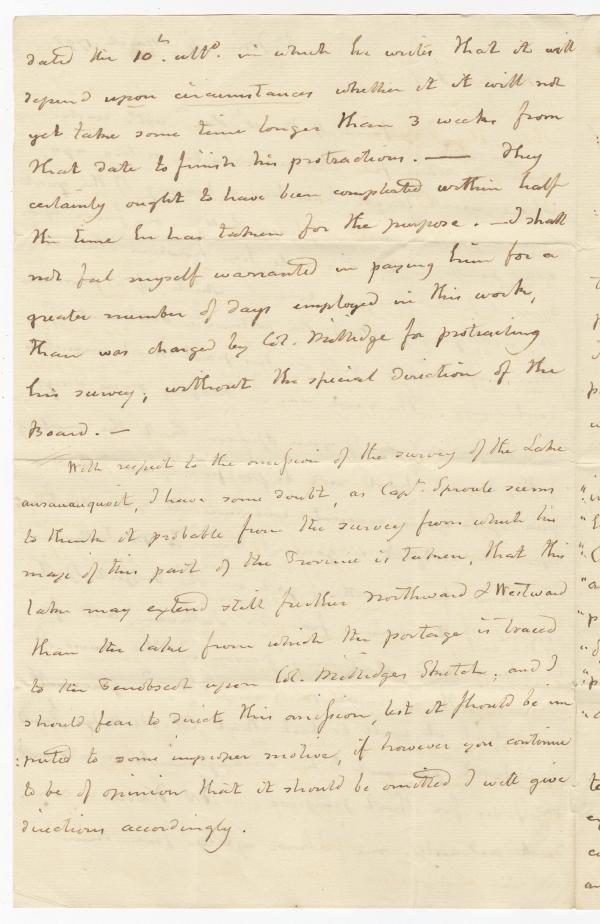 dated the 10th. ulto. in which he writes that it will
depend upon circumstances whether it it will not
yet take some time longer than 3 weeks from
that date to finish his protractions. — They
certainly ought to have been completed within half
the time he has taken for the purpose. — I shall
not feel myself warranted in paying him for a
greater number of days employed in this work,
than was charged by Col. Millidge for protracting
his survey, without the special direction of the
Board. —
With respect to the omission of the survey of the Lake
I have some doubt, as Capt. Sproule seems
to think it probable from the survey from which his
map of this part of the Province is taken, that this
lake may extend still further Northward & Westward
than the lake from which the portage is traced
to the Penobscot upon Col. Millidges Sketch; and I
should fear to direct this omission, lest it should be im
:puted to some improper motive, if however you continue
to be of opinion that it should be omitted I will give
directions accordingly.